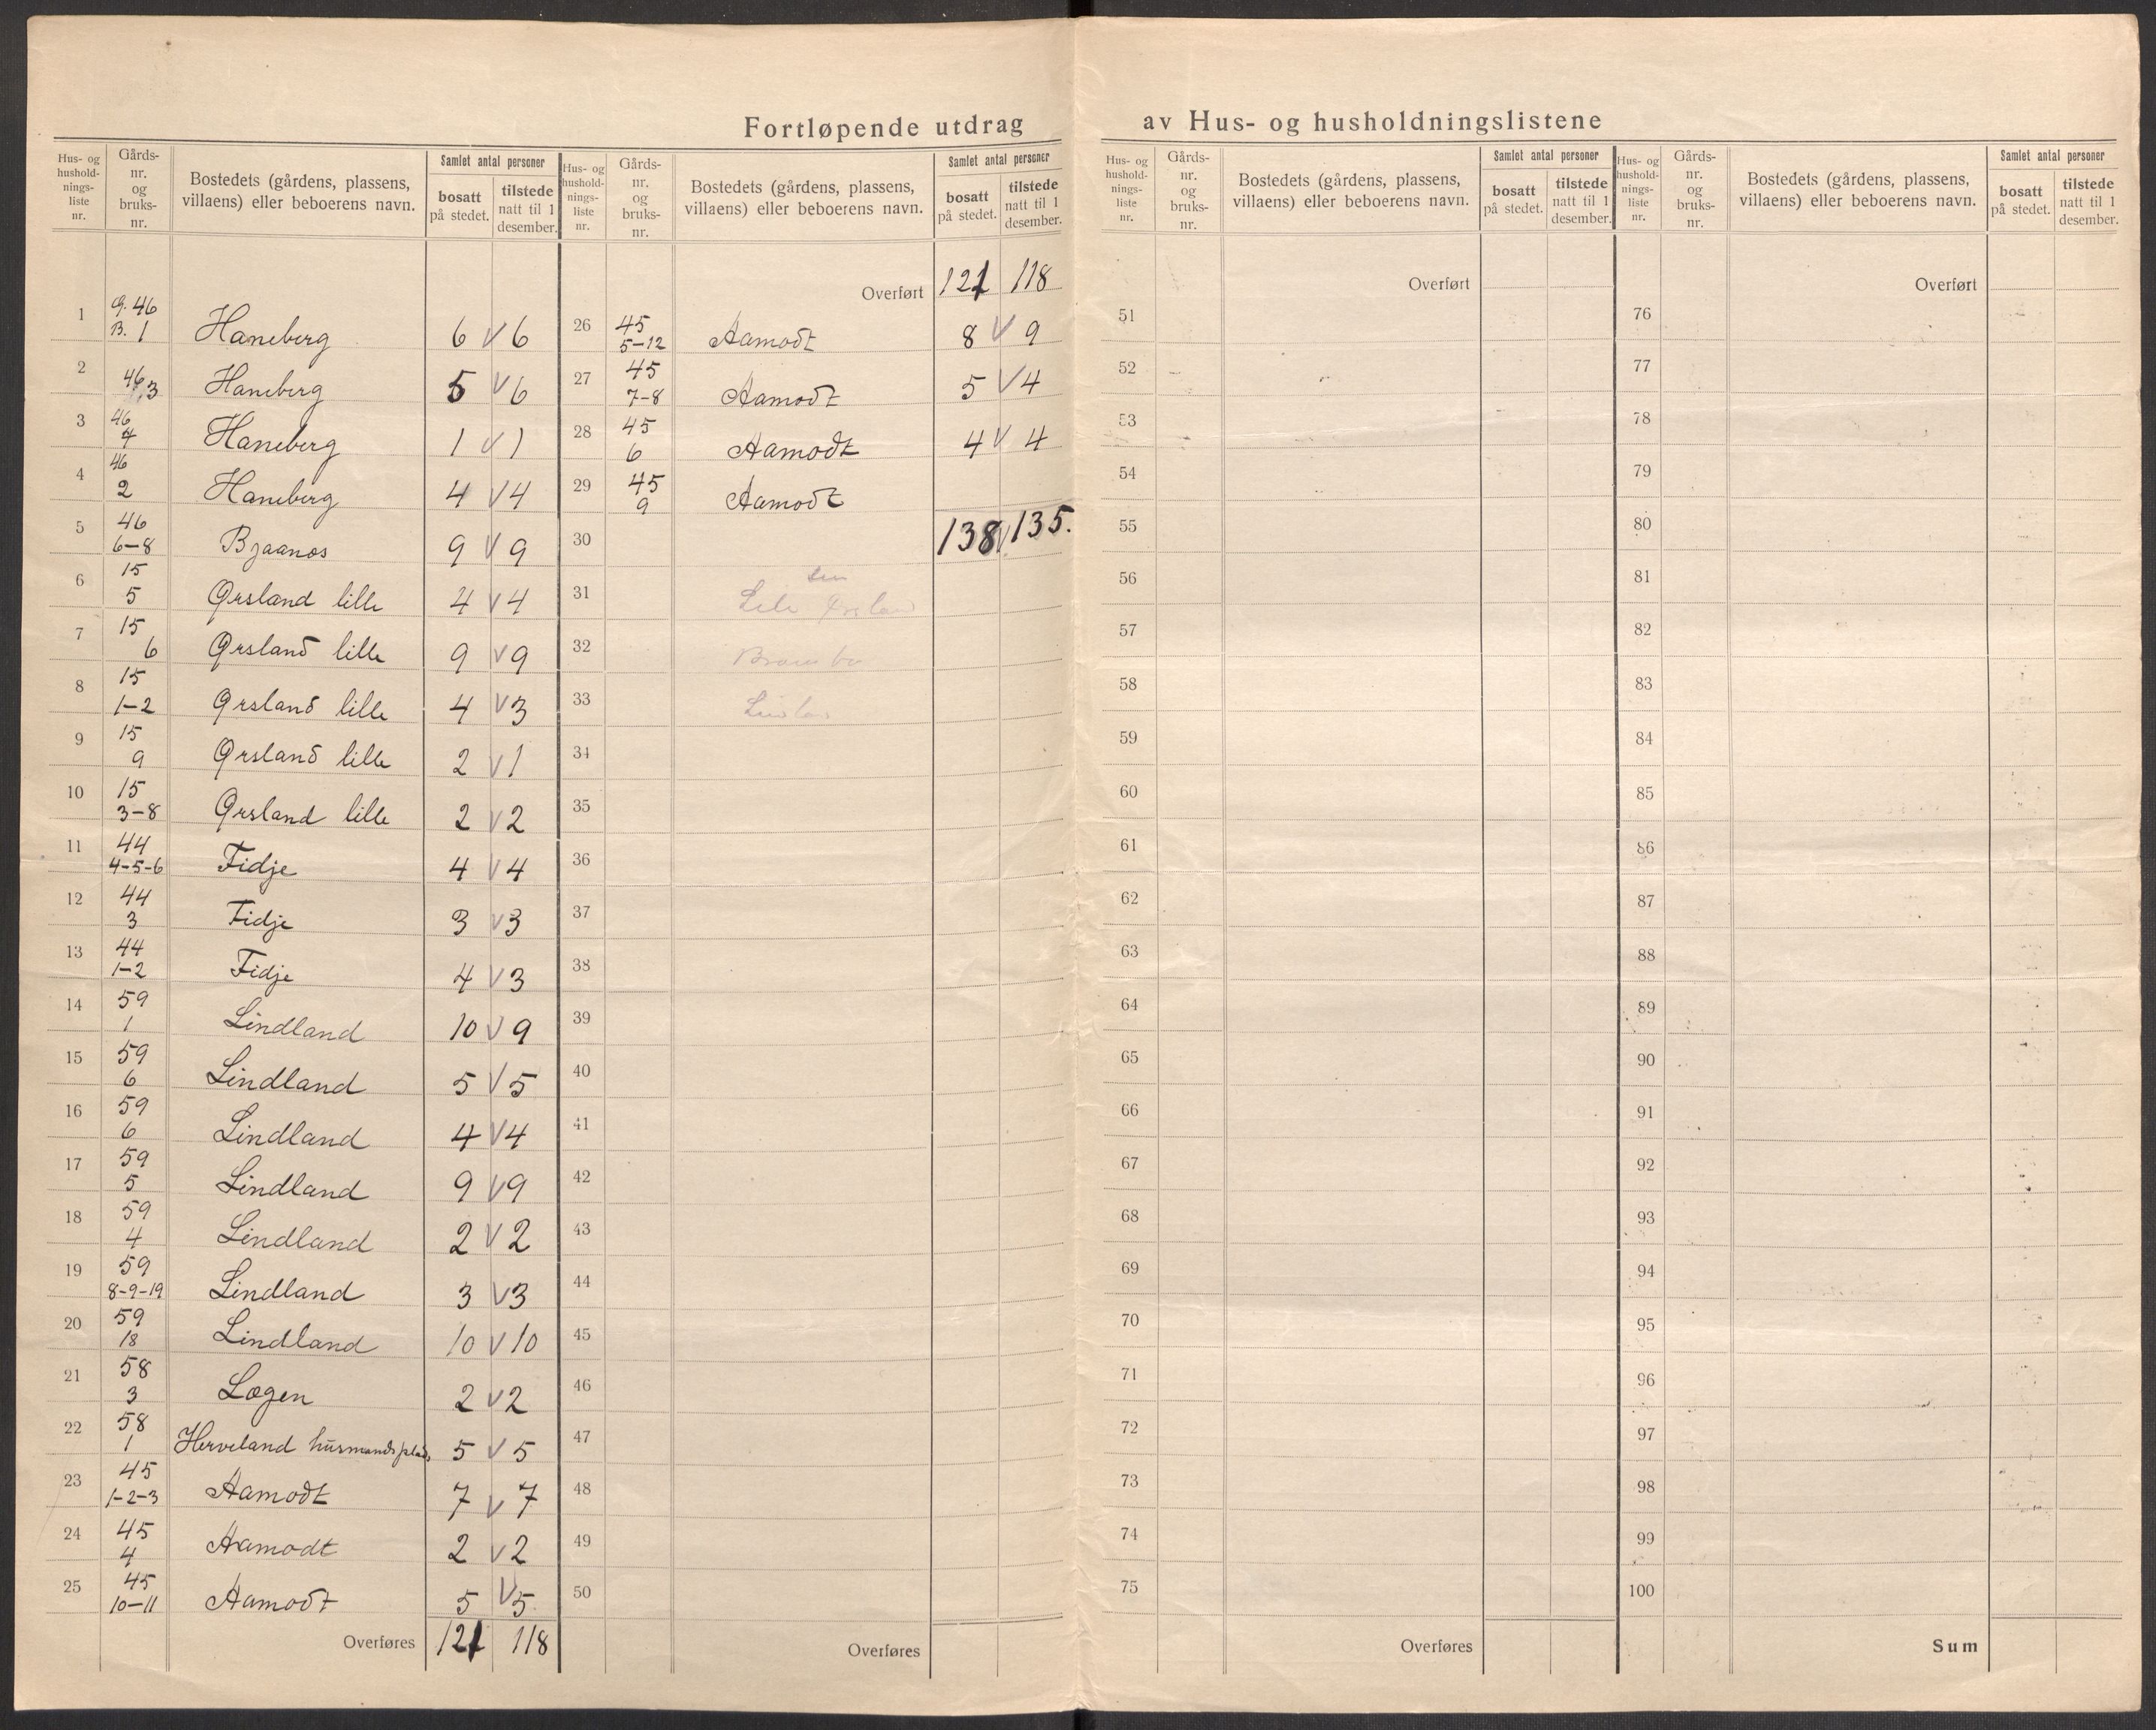 Fortløpende utdrag av Hus- og husholdningslistene
Hus- og husholdnings-liste nr. | Gårds-nr. og bruks-nr. | Bostedets (gårdens, plassens, villaens) eller beboerens navn. | Samlet antal personer | bosatt på stedet. | tilstede natt til 1 desember.
1 G. 46 B. 1 Haneberg 6 V 6
2 46,3 Haneberg 5 V 6
3 46 4 Haneberg 1 V 1
4 46 2 Haneberg 4 V 4
5 46 6-8 Bjaanes 9 V 9
6 15 5 Ørsland lille 4 V 4
7 15 6 Ørsland lille 9 V 9
8 15 1-2 Ørsland lille 4 V 3
9 15 9 Ørsland lille 2 V 1
10 15 3-8 Ørsland lille 2 V 2
11 44 4-5-6 Fidje 4 V 4
12 44 3 Fidje 3 V 3
13 44 1-2 Fidje 4 V 3
14 59 1 Lindland 10 V 9
15 59 6 Lindland 5 V 5
16 59 6 Lindland 4 V 4
17 59 5 Lindland 9 V 9
18 59 4 Lindland 2 V 2
19 59 8-9-19 Lindland 3 V 3
20 59 18 Lindland 10 V 10
21 58 3 Løgen 2 V 2
22 58 1 Herveland husmandsplads 5 V 5
23 45 1-2-3 Aamodt 7 V 7
24 45 4 Aamodt 2 V 2
25 45 10-11 Aamodt 5 V 5
Overføres 121 118
Hus- og husholdnings-liste nr. | Gårds-nr. og bruks-nr. | Bostedets (gårdens, plassens, villaens) eller beboerens navn. | Samlet antal personer | bosatt på stedet. | tilstede natt til 1 desember.
Overført 121 118
26 45 5-12 Aamodt 8 V 9
27 45 7-8 Aamodt 5 V 4
28 45 6 Aamodt 4 V 4
29 45 9 Aamodt
30 138 V 135.
31
32
33
34
35
36
37
38
39
40
41
42
43
44
45
46
47
48
49
50
Overføres
Hus- og husholdnings-liste nr. | Gårds-nr. og bruks-nr. | Bostedets (gårdens, plassens, villaens) eller beboerens navn. | Samlet antal personer | bosatt på stedet. | tilstede natt til 1 desember.
Overført
51
52
53
54
55
56
57
58
59
60
61
62
63
64
65
66
67
68
69
70
71
72
73
74
75
Overføres
Hus- og husholdnings-liste nr. | Gårds-nr. og bruks-nr. | Bostedets (gårdens, plassens, villaens) eller beboerens navn. | Samlet antal personer | bosatt på stedet. | tilstede natt til 1 desember.
Overført
76
77
78
79
80
81
82
83
84
85
86
87
88
89
90
91
92
93
94
95
96
97
98
99
100
Sum